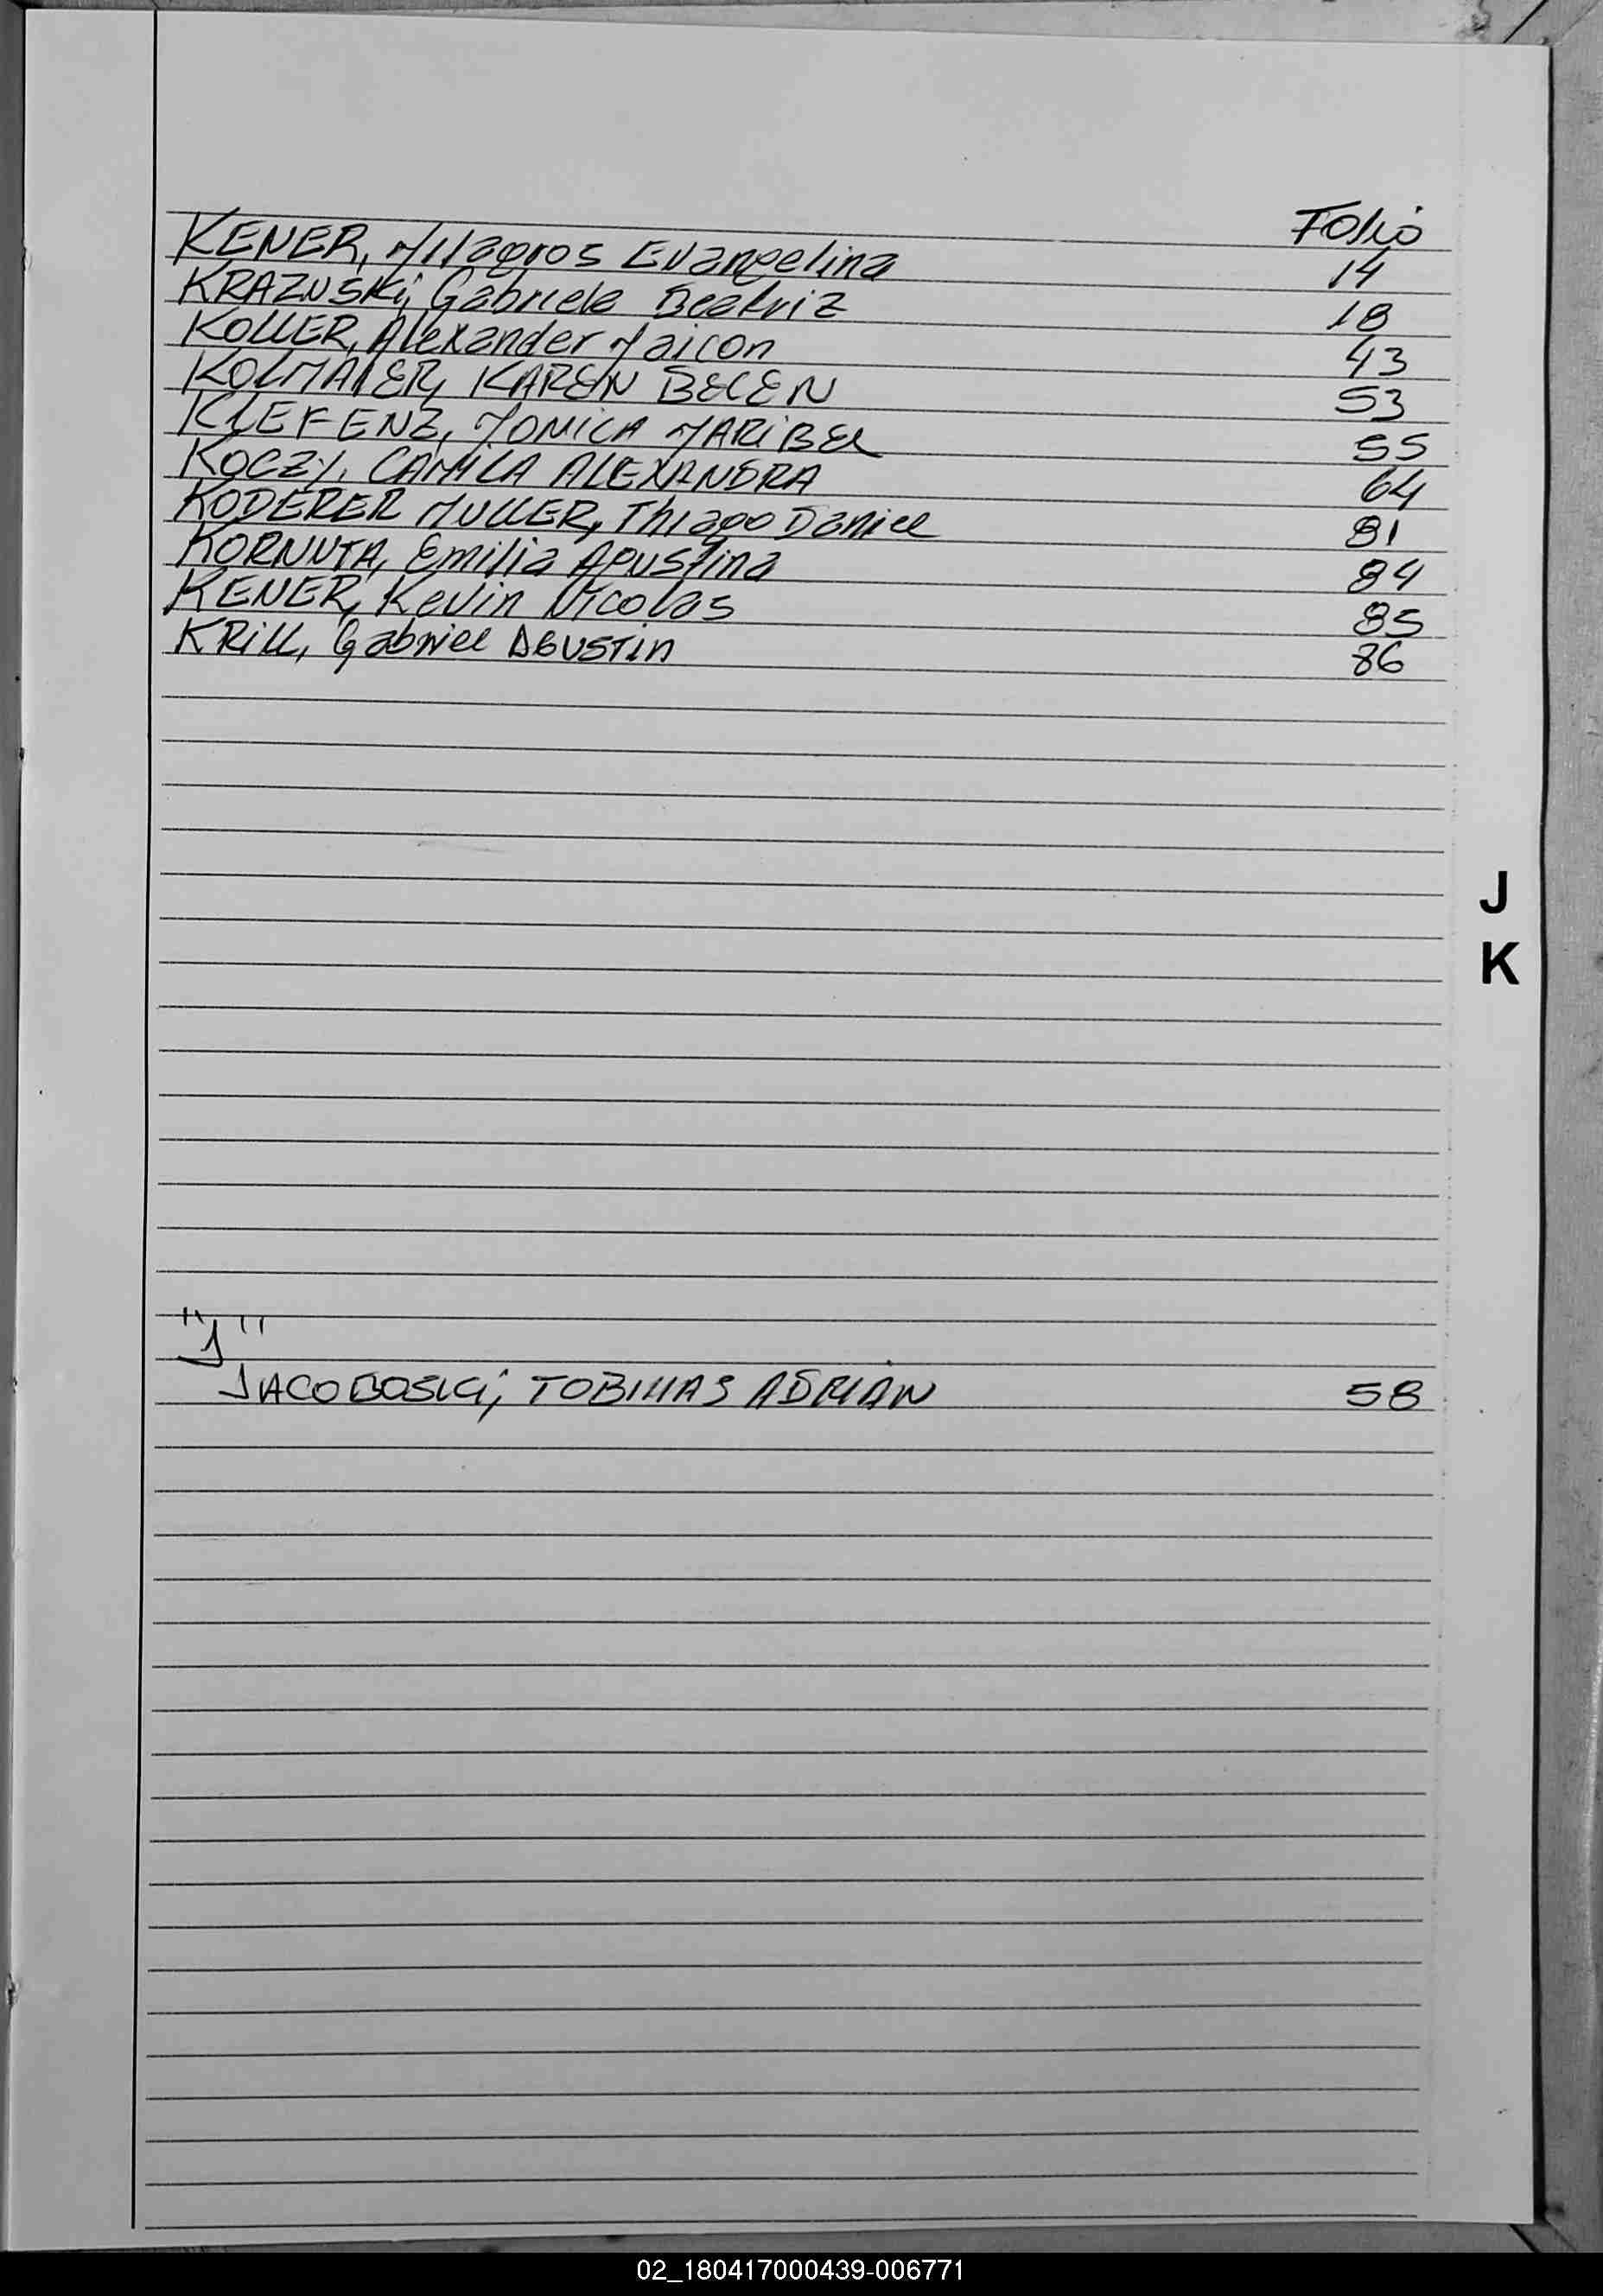 Folio
KENER, Milagros Evangelina 14
KRAZUSKi, Gabriela Beatriz 18
KOLLER, Alexander Maicon 43
KOLMAIER, KAREN BELEN 53
KLEFENZ, MONICA MARIBEL 55
KOCZY, CAMILA ALEXANDRA 64
KODERER MULLER, Thiago Daniel 81
KORNUTA, Emilia Agustina 84
KENER, Kevin Nicolas 85
KRiLL, Gabriel AGUSTIN 86
J
K
"J"
JACOBOSKi, TOBIHAS ADRIAN 58
02_180417000439-006771